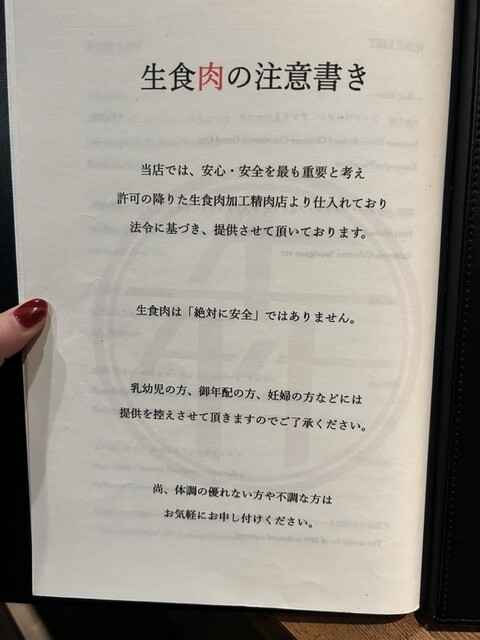 生食肉の注意書き
当店では、安心・安全を最も重要と考え
許可の降りた生食肉加工精肉店より仕入れており
法令に基づき、提供させて頂いております。
生食肉は「絶対に安全」ではありません。
乳幼児の方、御年配の方、妊婦の方などには
提供を控えさせて頂きますのでご了承ください。
尚、体調の優れない方や不調な方は
お気軽にお申し付けください。